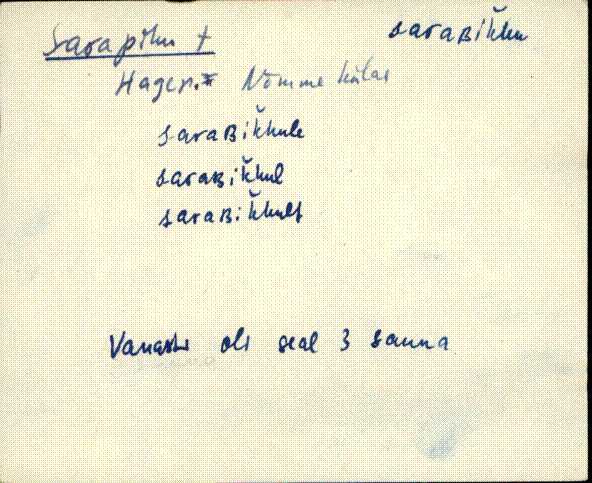 Sarapiku t saraʙik̆ku
Hager. Nõmme külas
saraʙik̆kule
saraʙik̆kul
saraʙik̆kult
Vanasti oli seal 3 sauna